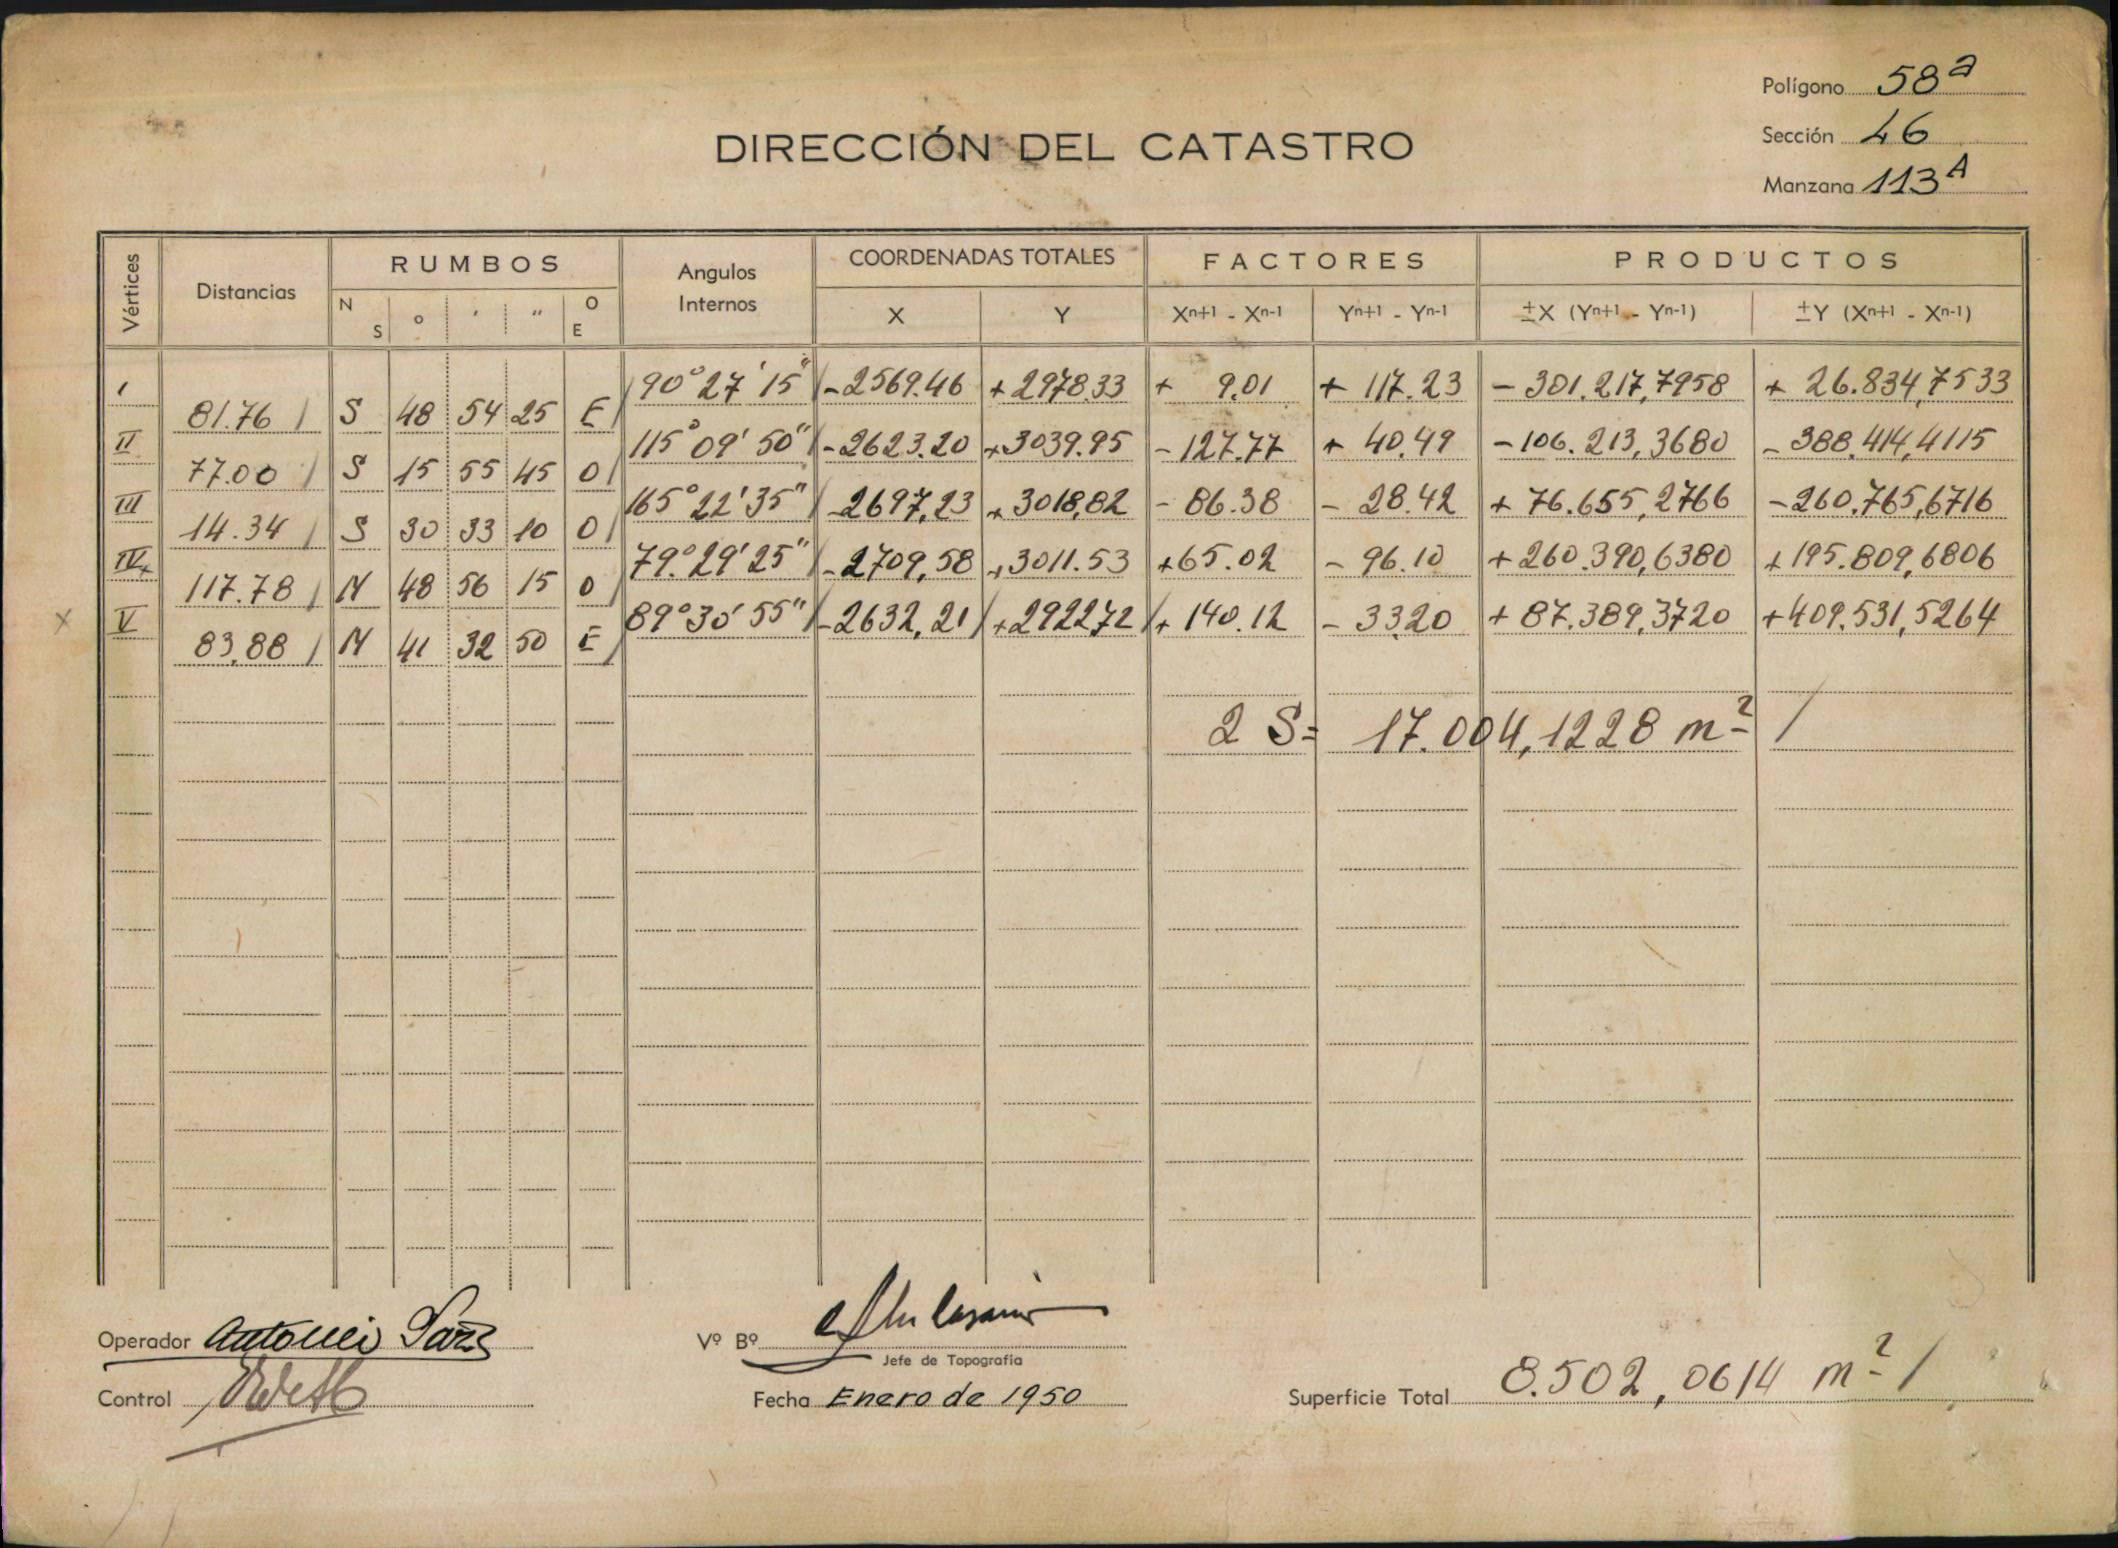 Polígono 58ª
Sección 46
DIRECCIÓN DEL CATASTRO
Manzana 113A
Vértices Distancias RUMBOS Angulos Internos COORDENADAS TOTALES FACTORES PRODUCTOS
N S ° ' " O E X Y Xn+1 - Xn-1 Yn+1 - Yn-1 ±X (Yn+1 - Yn-1) ±Y (Xn+1 - Xn-1)
I 90° 27' 15" -2569.46 +2978.33 + 9.01 + 117.23 - 301.217,7958 + 26.834,7533
81.76 S 48 54 25 E
II 115° 09' 50" -2623.20 +3039.95 - 127.77 + 40.49 - 106.213,3680 - 388.414,4115
77.00 S 15 55 45 O
III 165° 22' 35" -2697,23 +3018,82 - 86.38 - 28.42 + 76.655,2766 - 260.765,6716
14.34 S 30 33 10 O
IV 79° 29' 25" -2709,58 +3011.53 +65.02 - 96.10 + 260.390,6380 + 195.809,6806
117.78 N 48 56 15 O
X V 89° 30' 55" -2632,21 +292272 + 140.12 - 3320 + 87.389,3720 +409.531,5264
83,88 N 41 32 50 E
2 S= 17.004,1228 m²
Operador Antonio
Vº Bº
Jefe de Topografía
Control
Fecha Enero de 1950
Superficie Total 8.502,0614 m²